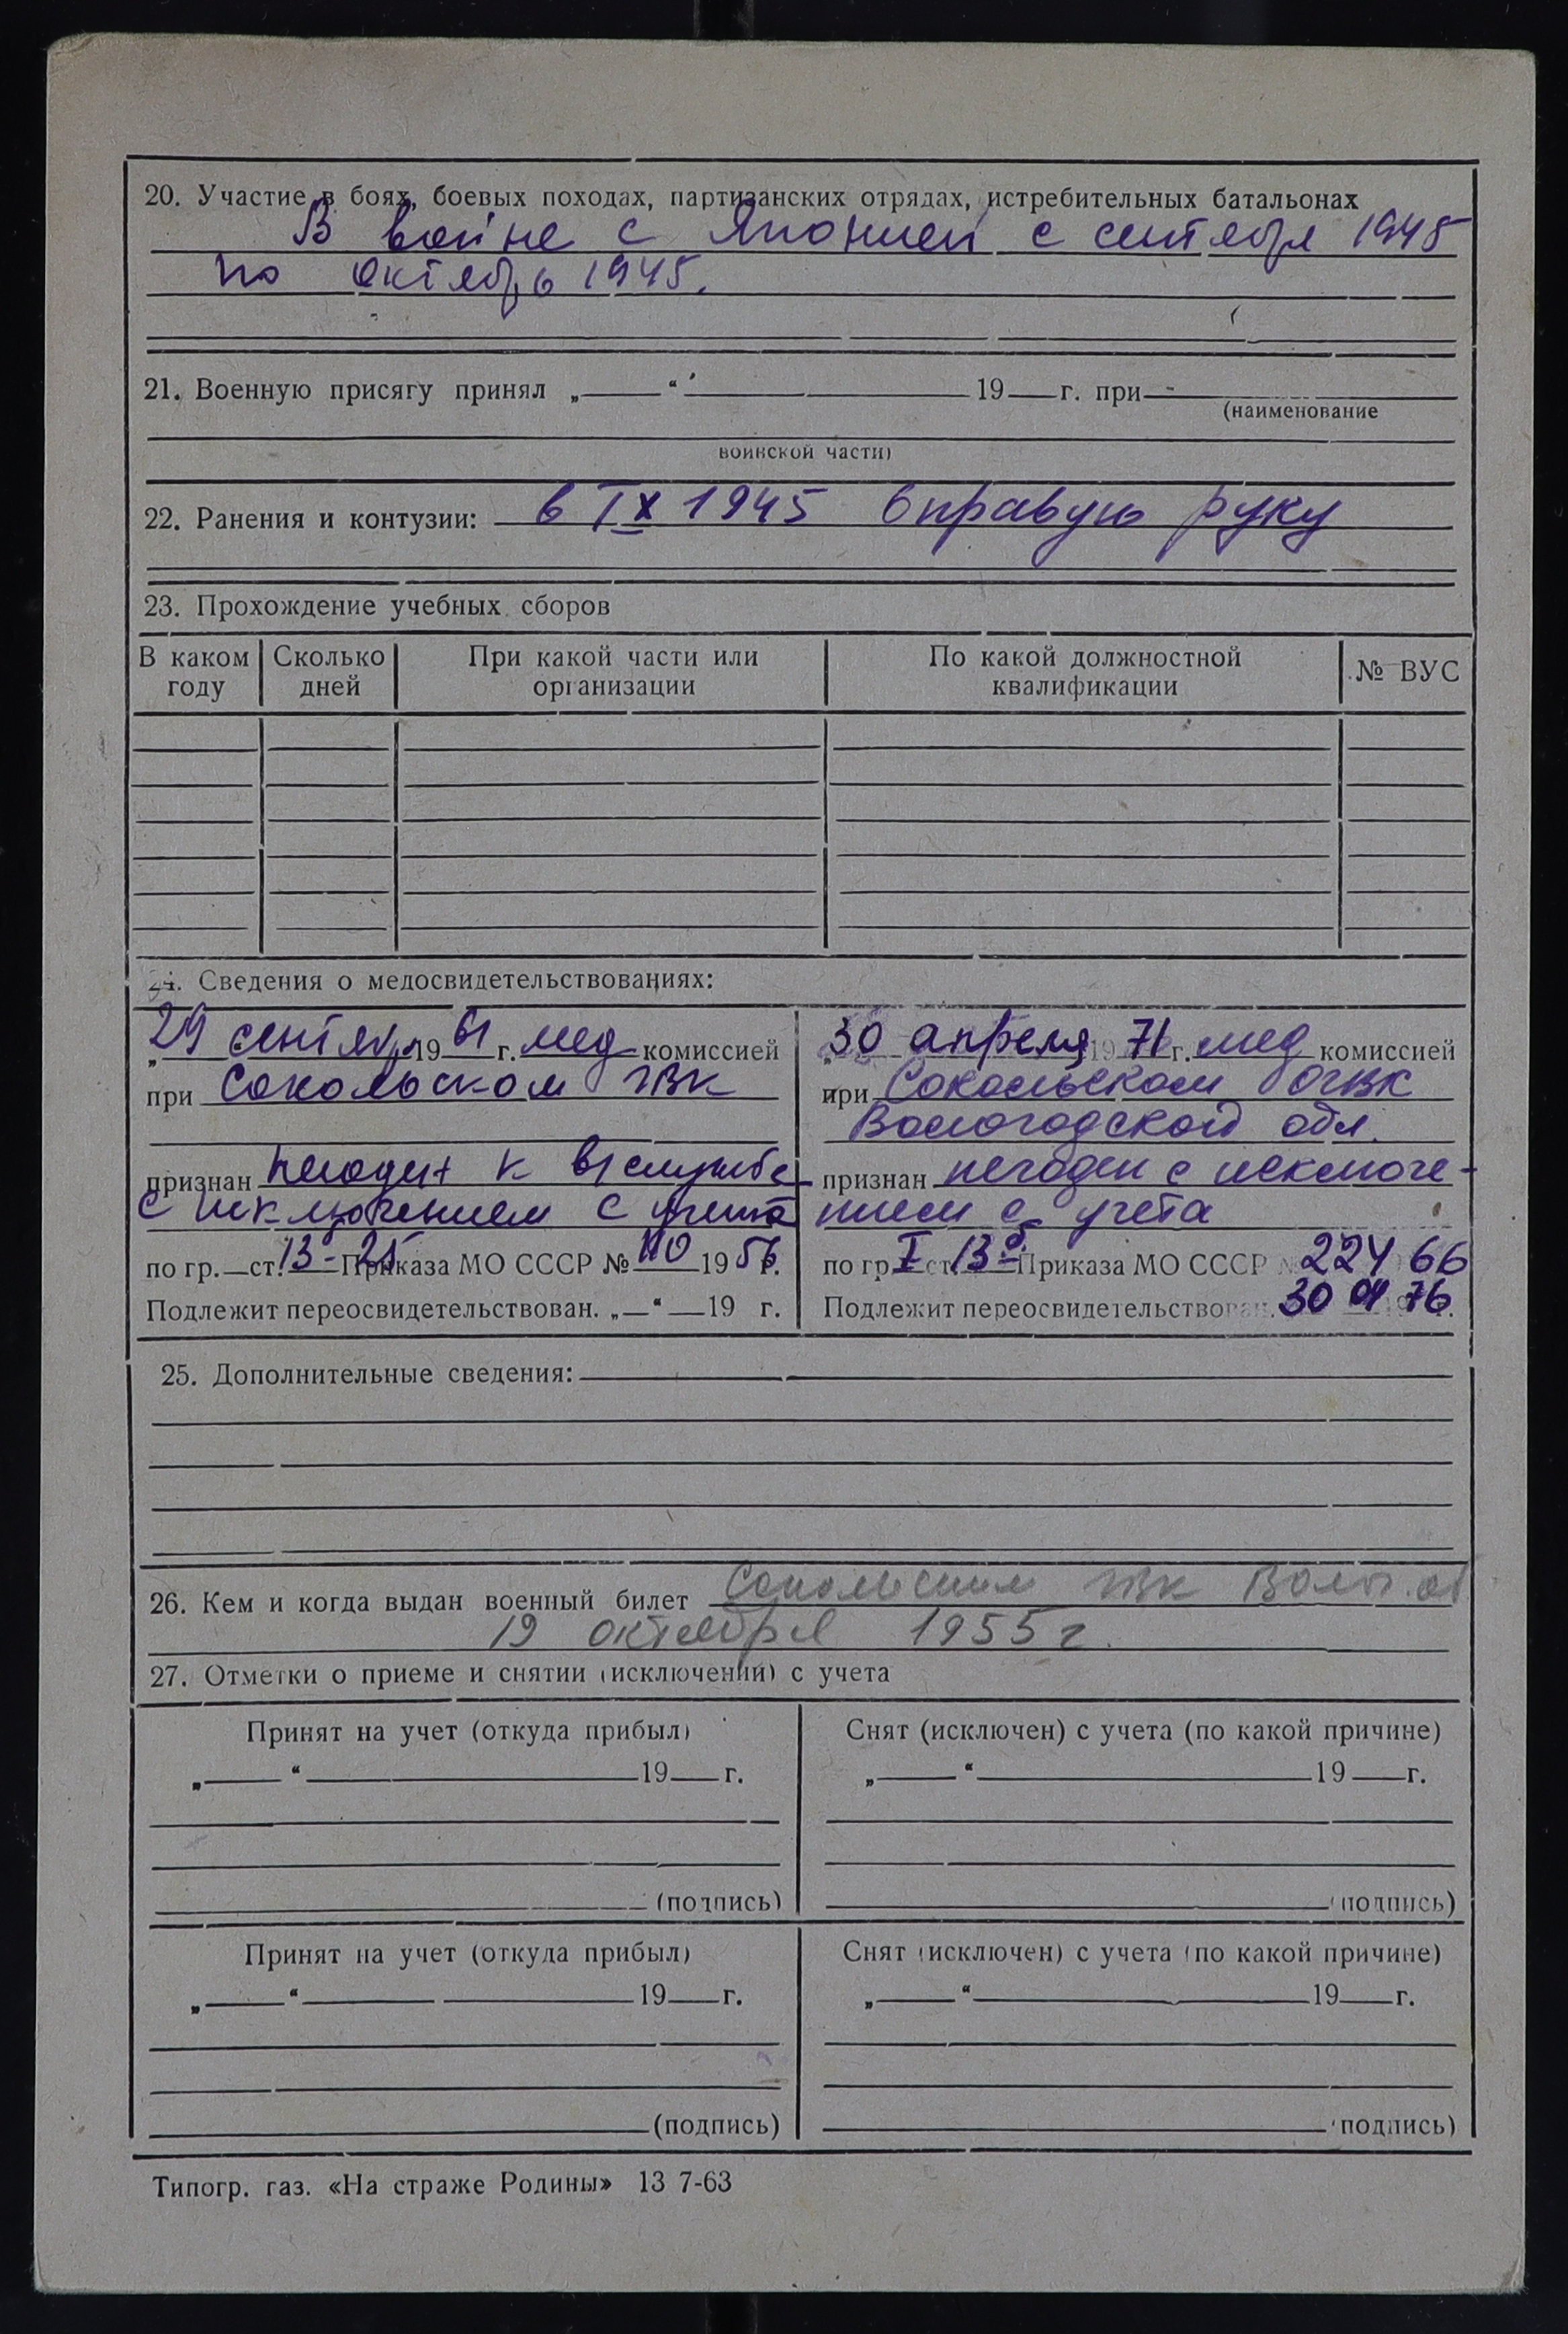 20. Участие в боях, боевых походах, партизанских отрядах, истребительных батальонах
В войне с Японией с сентября 1945
по октябрь 1945.
21. Военную присягу принял „ “ 19 г. при -
(наименование
воинской части)
22. Ранения и контузии: в IX 1945 в правую руку
23. Прохождение учебных сборов
В каком году Сколько дней При какой части или организации По какой должностной квалификации № ВУС
24. Сведения о медосвидетельствованиях:
29 сентября 1961 г. мед комиссией
при Сокольском ГВК
признан негоден к в/службе
с исключением с учета
по гр. ст. 13-25 Приказа МО СССР № 110 1956 г.
Подлежит переосвидетельствован. „ “ 19 г.
30 апреля 1971 г. мед комиссией
при Сокольском ОГВК
Вологодской обл.
признан негоден с исключе-
нием с учета
по гр. I ст. 13б Приказа МО СССР № 224 66
Подлежит переосвидетельствован. 30 04 76 г.
25. Дополнительные сведения:
26. Кем и когда выдан военный билет Сокольским ГВК Волог. об
19 октября 1955 г.
27. Отметки о приеме и снятии (исключении) с учета
Принят на учет (откуда прибыл)
„ “ 19 г.
(подпись)
Снят (исключен) с учета (по какой причине)
„ “ 19 г.
(подпись)
Принят на учет (откуда прибыл)
„ “ 19 г.
(подпись)
Снят (исключен) с учета (по какой причине)
„ “ 19 г.
(подпись)
Типогр. газ. «На страже Родины» 13 7-63